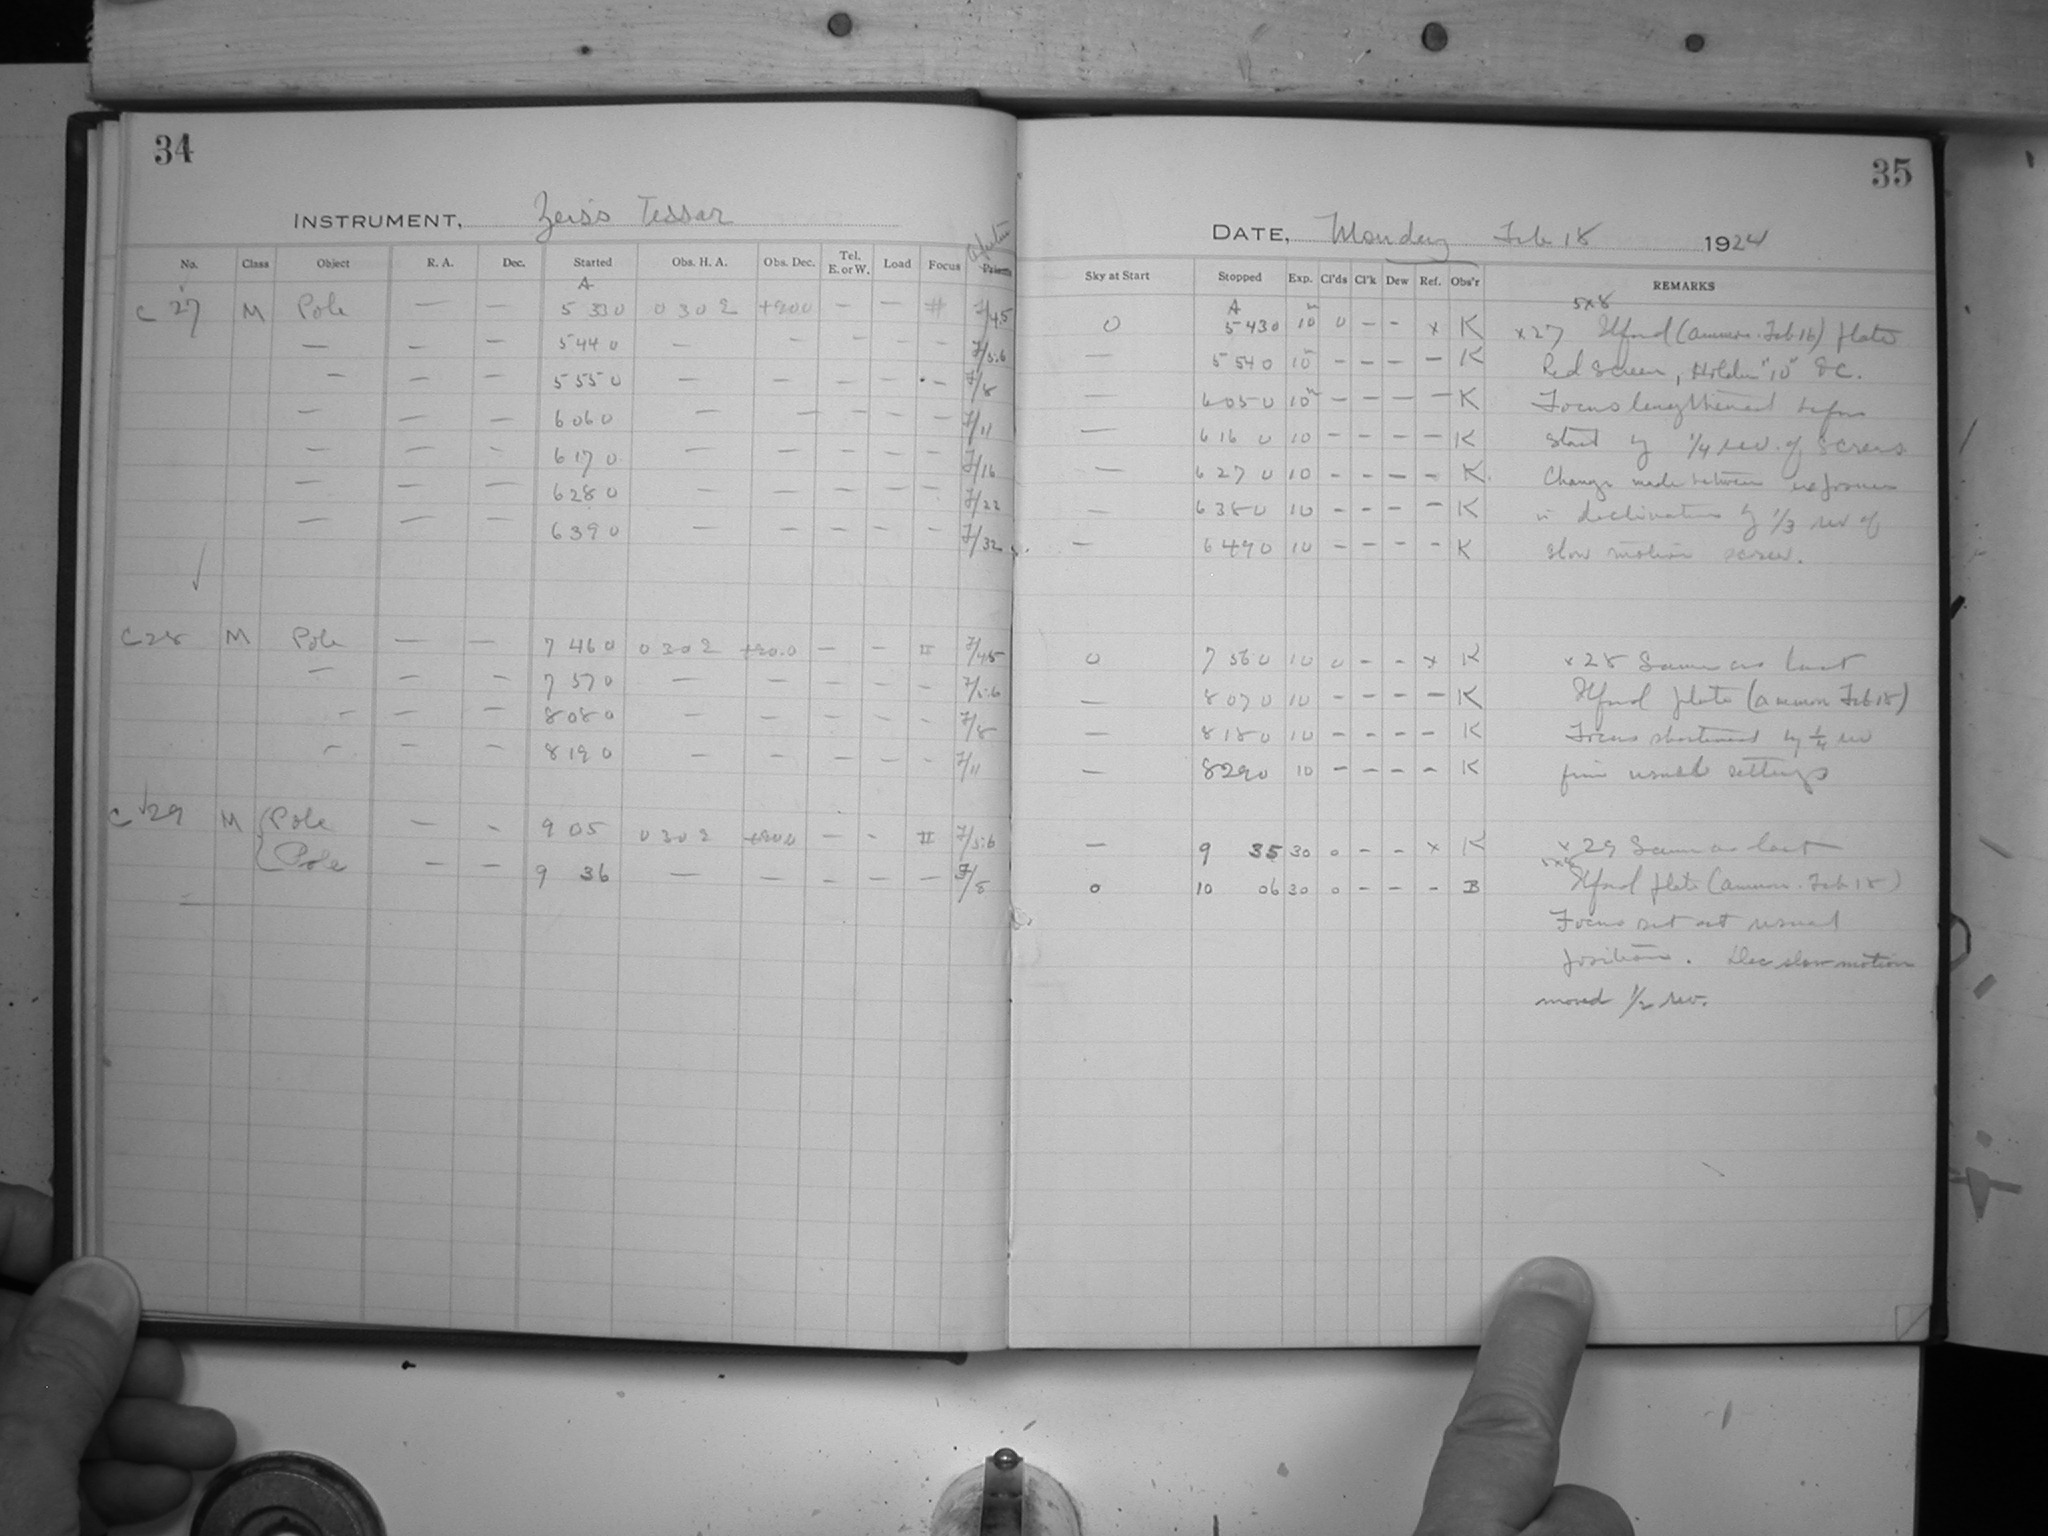 34
INSTRUMENT, Zeiss Tessar
No. Class Object R. A. Dec. Started Obs. H. A. Obs. Dec. Tel. E. or W. Load Focus
A
C 27 M Pole — — 5 33 0 0 30 2 +900 — — # F/4.5
— — — 5 44 0 — — — — — F/5.6
— — — 5 55 0 — — — — — F/8
— — — 6 06 0 — — — — — F/11
— — — 6 17 0 — — — — — F/16
— — — 6 28 0 — — — — — F/22
— — — 6 39 0 — — — — — F/32
C 28 M Pole — — 7 46 0 0 30 2 +90.0 — — II F/4.5
— — — 7 57 0 — — — — — F/5.6
— — — 8 08 0 — — — — — F/8
— — — 8 19 0 — — — — — F/11
C 29 M Pole — — 9 05 0 30 2 +900 — — II F/5.6
Pole — — 9 36 — — — — — F/8
35
DATE, Monday Feb 18 1924
Sky at Start Stopped Exp. Cl'ds Cl'k Dew Ref. Obs'r REMARKS
A m 5x8
0 5 43 0 10 0 — — x K x27 Ilford (ammon. Feb. 16) plate
— 5 54 0 10m — — — — K Red Screen, Holder "10" S C.
— 6 05 0 10m — — — — K Focus lengthened before
— 6 16 0 10 — — — — K start by 1/4 rev. of screws
— 6 27 0 10 — — — — K Change made between exposures
— 6 38 0 10 — — — — K in declination by 1/3 rev of
— 6 49 0 10 — — — — K slow motion screw.
0 7 56 0 10 0 — — x K x 28 Same as last
— 8 07 0 10 — — — — K Ilford plate (ammon Feb 18)
— 8 18 0 10 — — — — K Focus shortened by 1/4 rev
— 8 29 0 10 — — — — K from usual settings
— 9 35 30 0 — — x K x 29 Same as last
5x8
0 10 06 30 0 — — — B Ilford plate (ammon. Feb. 18)
Focus set at usual
position. Dec slow motion
moved 1/2 rev.